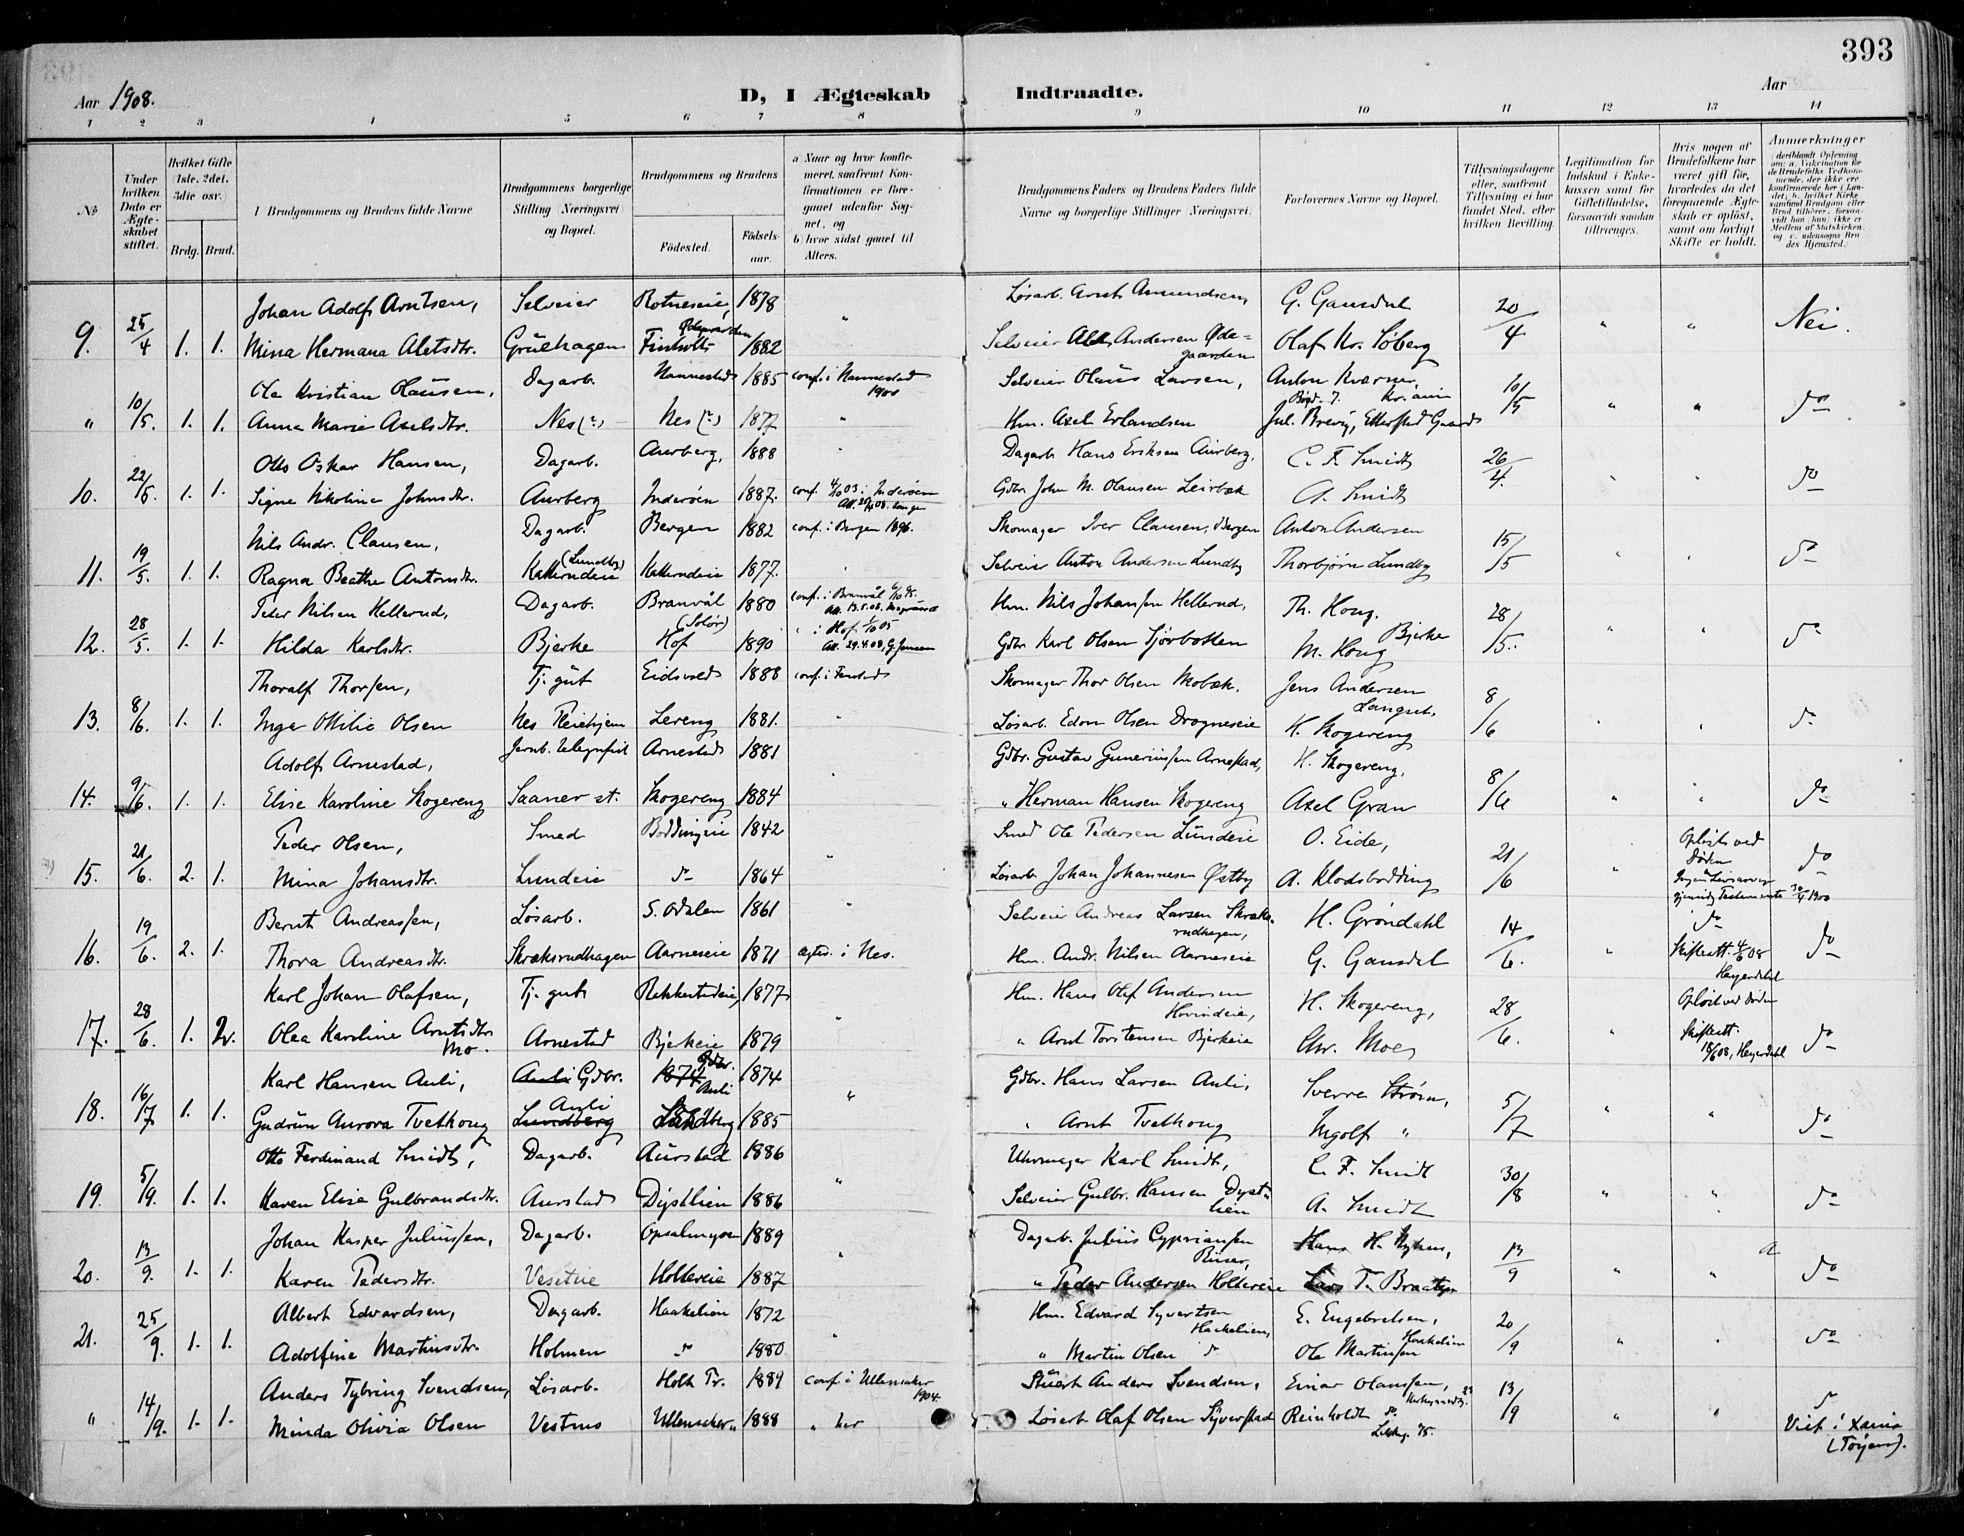 393
Aar 1908.
D, I Ægteskab Indtraadte.
Aar
1 2 3 4 5 6 7 8 9 10 11 12 13 14
№
Under hvilken Dato er Ægteskabet stiftet.
Hvilket Gifte 1ste, 2det, 3die osv.
Brdg. Brud.
Brudgommens og Brudens fulde Navne
Brudgommens borgerlige Stilling (Næringsvei) og Bopæl.
Brudgommens og Brudens
Fødested. Fødselsaar.
a) Naar og hvor konfirmeret, saafremt Konfirmationen er foregaaet udenfor Sognet, og
b) hvor sidst gaaet til Alters.
Brudgommens Faders og Brudens Faders fulde Navne og borgerlige Stillinger (Næringsvei).
Forlovernes Navne og Bopæl.
Tillysningsdagene eller, saafremt Tillysning ei har fundet Sted, efter hvilken Bevilling.
Legitimation for Indskud i Enkekassen samt for Giftetilladelse, forsaavidt saadan tiltrænges.
Hvis nogen af Brudefolkene har været gift før, hvorledes da det foregaaende Ægteskab er opløst, samt om lovligt Skifte er holdt.
Anmerkninger
Johan Adolf Arntsen, Selveier Rotneseie, 1878 Løsarb. Arnt Amundsen, G. Gansdal 20/4
9. 25/4 1. 1. Mina Hermana Aletsdtr. Grüehagen 1882 " Selveier Andersen Ødegaarden Olaf Kr. Søberg " " Nei.
Ole Kristian Olausen, Dagarb. Nannestad 1885 conf. i Nannestad 1900 Selveier Olaus Larsen, Anton Kværner,
" 10/5. 1. 1. Anna Marie Axelsdtr. Nes (?) Nes (?) 1877 " Hm. Axel Erlandsen Jul. Brevig, 10/5 " " do
Otto Oskar Hansen, Dagarb. Aurberg, 1888 Dagarb. Hans Eriksen Aurberg, C. F. Smidt 26/4.
10. 22/5. 1. 1. Signe Nikoline Johnsdtr. Aurberg Inderøen 1887. conf. 4/10 03 i Inderøen Gdbr. John M. Olausen Leirbæk A. Smidt " " do
Nils Andr. Clausen, Dagarb. Bergen 1882 conf. i Bergen 1896. Skomager Iver Clausen, Bergen Anton Andersen
11. 19/5. 1. 1. Ragna Beathe Antonsdtr. (Lundby) Katterudeie Katterudeie 1877. Selveier Anton Andersen Lundby Thorbjørn Lundby 15/5 " " do
Peder Nilsen Hellerud, Dagarb. Branvål 1880 conf. i Branvål Hm. Nils Johansen Hellerud, Th. Haug,
12. 28/5. 1. 1. Hilda Karlsdtr. Bjerke Hof (Solør) 1890 " i Hof 1/10 05 Att. 29.4.08, G. Jensen Gdbr. Karl Olsen Sjørbotten M. Haug Bjerke 28/5. " " do
Thoralf Thorsen, Tj. gut Eidsvold 1888 conf. i Skomager Thor Olsen Mobæk, Jens Andersen Langset,
13. 8/6. 1. 1. Inga Otilie Olsen Nes Pleiehjem Lereng 1881. " Løsarb. Edon Olsen Drogneseie H. Skogereng 8/6 " " do
Adolf Arnestad, Jernb. telegrafist Arnestad 1881 Gdbr. Gustav Gunerinssen Arnestad, H. Skogereng,
14. 9/6. 1. 1. Elise Karoline Skogereng Saaner st. Skogereng 1884 " " Herman Hansen Skogereng Axel Gran 8/6 " " do
Peder Olsen, Smed Boddingeie 1842 Smed Ole Pedersen Lundeie O. Eide, Opløst ved Døden
15. 21/6. 2. 1. Mina Johansdtr. Lundeie do 1864 " Løsarb. Johan Johannesen Østby A. Klodsbødding 21/6 " do
Bernt Andreassen, Løsarb. S. Odalen 1861 " Selveier Andreas Larsen Skræksrudhagen, H. Grøndahl do
16. 19/6. 2. 1. Thora Andreasdtr. Skræksrudhagen Aarneseie 1871 i Nes. Hm. Andr. Nilsen Aarneseie G. Gansdal 14/6. " Skifteatt. 4/6 08 Heyerdahl do
Karl Johan Olafsen, Tj. gut 1877 Hm. Hans Olaf Andersen Hovindeie, H. Skogereng, Opløst ved Døden
17. 28/6. 1. 2. Olea Karoline Arntsdtr. Mo. Arnestad Bjerkeie 1879 " " Arnt Torstensen Bjerkeie Chr. Moe 28/6. " Skifteatt. 18/6 08, Heyerdahl do
Karl Hansen Auli, Auli Gdbr. 1874 Auli 1874 Gdbr. Hans Larsen Auli, Sverre Strøm,
18. 16/7 1. 1. Gudrun Aurora Tvethoug Lundberg Auli 1885 " " Arnt Tvethoug Ingolf " 5/7 " " do
Otto Ferdinand Smidt, Dagarb. Aurstad 1886 Uhrmager Karl Smidt, C. F. Smidt
19. 5/9. 1. 1. Karen Elise Gulbrandsdtr. Aurstad Dystlien 1886 " Selveier Gulbr. Hansen Dystlien A. Smidt 30/8 " " do
Johan Kasper Juliussen, Dagarb. Opsalmyren 1889 Dagarb. Julius Cypriansen Riiser, Hans H. Myhrer,
20. 13/9. 1. 1. Karen Pedersdtr. Vesetrie Holtereie 1887 " " Peder Andersen Holtereie Lars T. Braaten 13/9 " " do
Albert Edvardsen, Dagarb. Haakelien 1872 Hm. Edvard Syvertsen Haakelien, E. Engebretsen,
21. 25/9. 1. 1. Adolfine Martinsdtr. Holmen do 1880 " " Martin Olsen do Ole Martinsen Haakelien 20/9 " " do
Anders Tybring Svendsen, Løsarb. Holt Tr. 1889 conf. i Ullensaker 1904. Anders Svendsen, Einar Olausen,
" 14/9. 1. 1. Minda Olivia Olsen Vestmo Ullensaker 1888 " her Løsarb. Olaf Olsen Syverstad Reinholdt do 13/9 " " do
Viet i Xania (Tøyen).